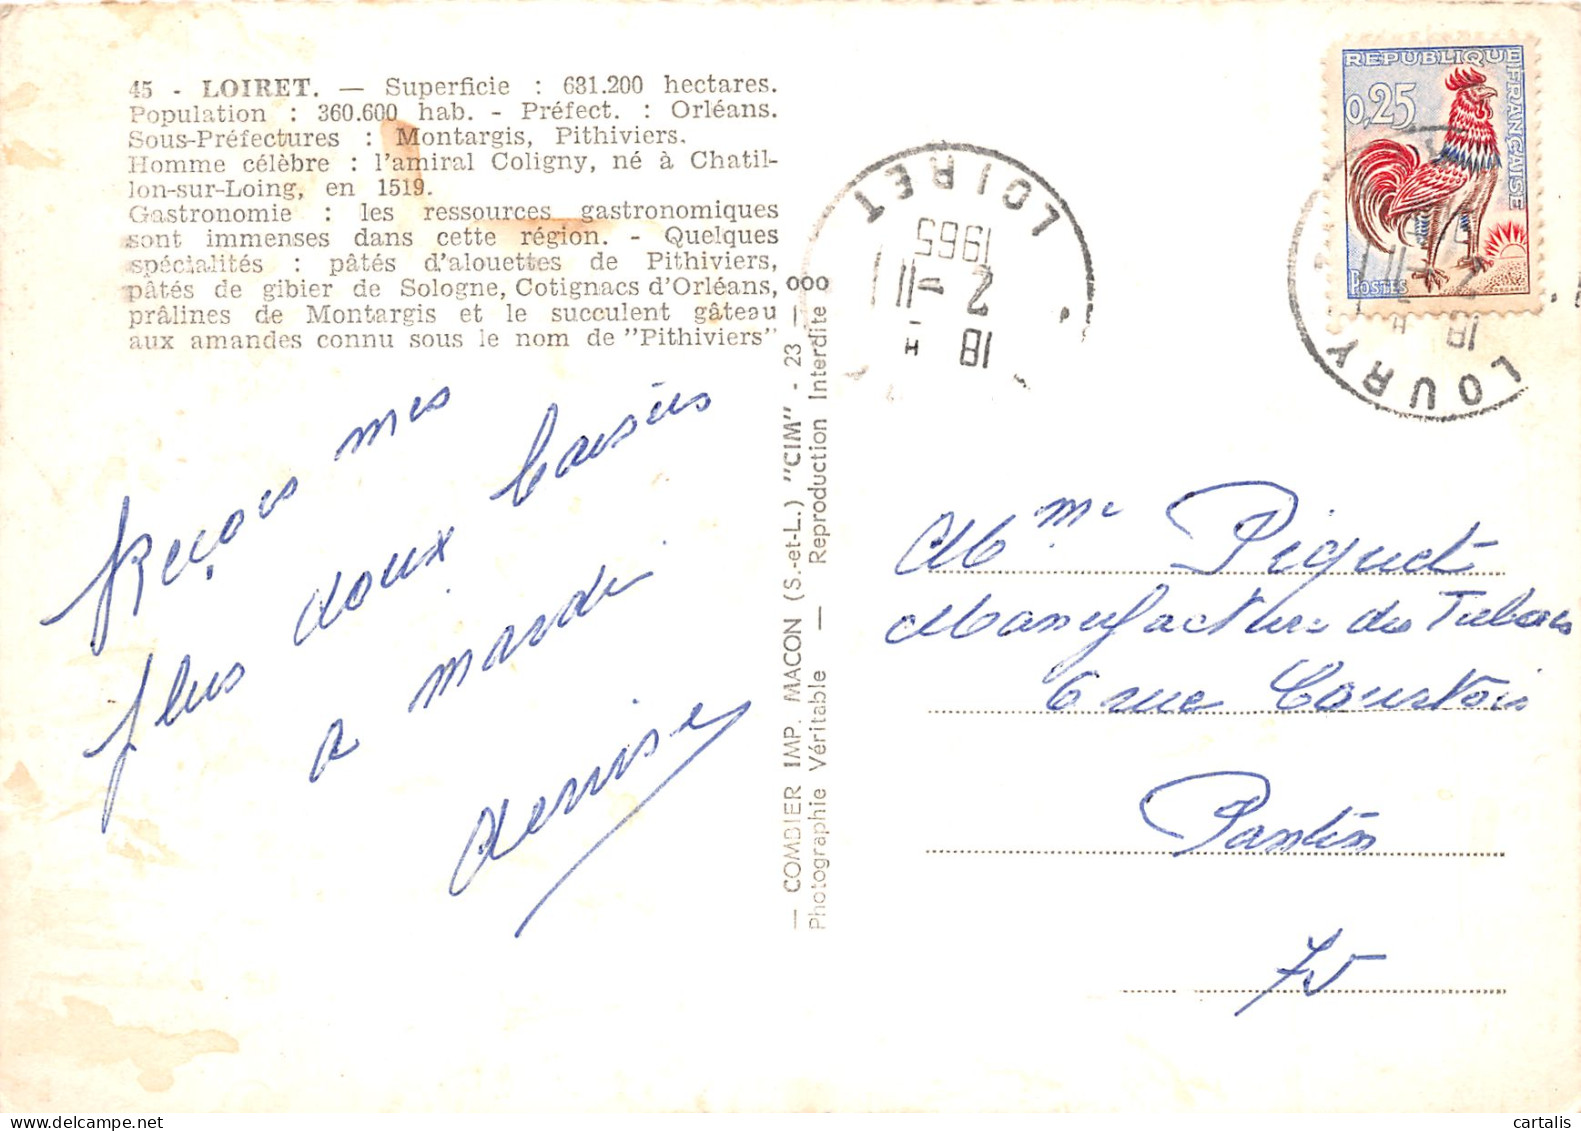 45 - LOIRET. — Superficie : 681.200 hectares.
Population : 360.600 hab. - Préfect. : Orléans.
Sous-Préfectures : Montargis, Pithiviers.
Homme célèbre : l'amiral Coligny, né à Chatil-
lon-sur-Loing, en 1519.
Gastronomie : les ressources gastronomiques
sont immenses dans cette région. - Quelques
spécialités : pâtés d'alouettes de Pithiviers,
pâtés de gibier de Sologne, Cotignacs d'Orléans,
prâlines de Montargis et le succulent gâteau
aux amandes connu sous le nom de "Pithiviers"
Reçois mes
plus doux baisers
a mardi
denise
— COMBIER IMP. MACON (S.-et-L.) "CIM" - 23 — ooo
Photographie Véritable — Reproduction Interdite
LOIRET
18 H
2 -11
1965
REPUBLIQUE FRANÇAISE
0,25
POSTES
LOURY
18 H
Mme Piquet
Manufacture des Tabacs
6 rue Courtois
Pantin